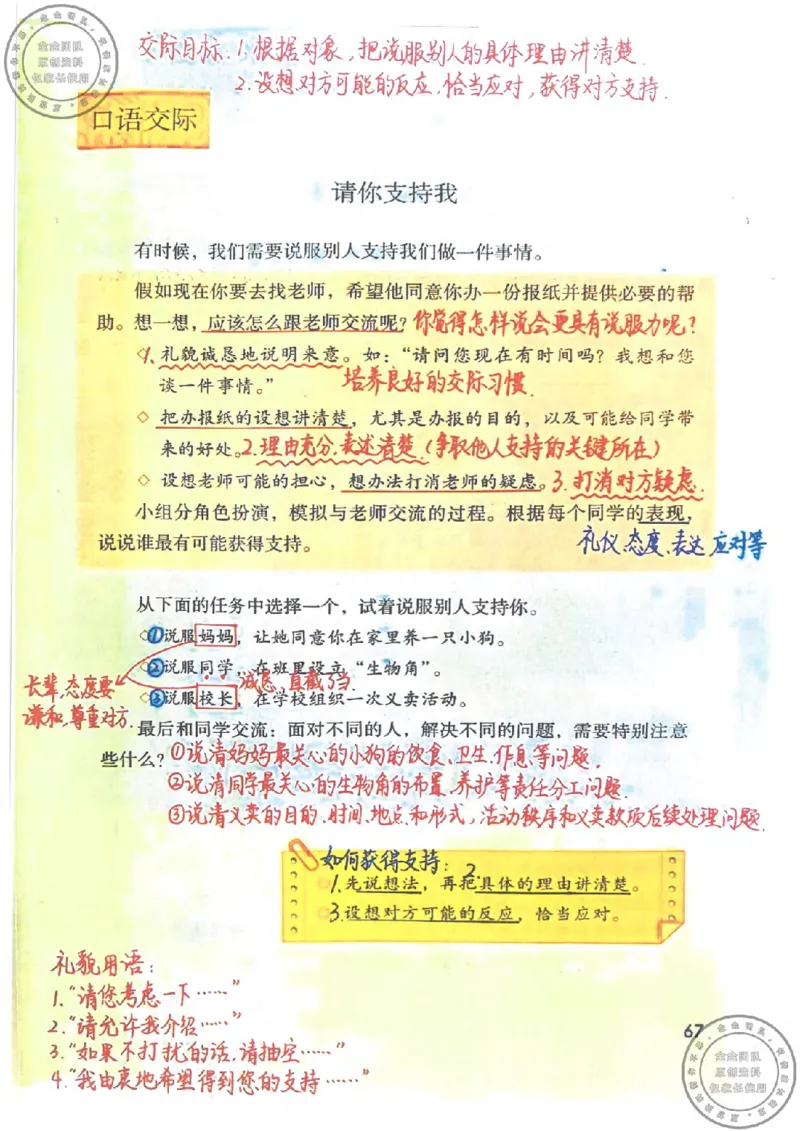 交际目标:1.根据对象,把说服别人的具体理由讲清楚.
2.设想对方可能的反应,恰当应对,获得对方支持.
企企团队
原创资料
仅家长使用
口语交际
请你支持我
有时候,我们需要说服别人支持我们做一件事情。
假如现在你要去找老师,希望他同意你办一份报纸并提供必要的帮
助。想一想,应该怎么跟老师交流呢?你觉得怎样说会更具有说服力呢?
◇1.礼貌诚恳地说明来意。如:“请问您现在有时间吗?我想和您
谈一件事情。” 培养良好的交际习惯.
◇ 把办报纸的设想讲清楚,尤其是办报的目的,以及可能给同学带
来的好处。2.理由充分.表述清楚.(争取他人支持的关键所在)
◇ 设想老师可能的担心,想办法打消老师的疑虑。3.打消对方疑虑.
小组分角色扮演,模拟与老师交流的过程。根据每个同学的表现,
说说谁最有可能获得支持。 礼仪、态度、表达、应对等
从下面的任务中选择一个,试着说服别人支持你。
◇①说服妈妈,让她同意你在家里养一只小狗。
◇②说服同学,在班里设立“生物角”。
诚恳,直截了当.
长辈,态度要
◇③说服校长,在学校组织一次义卖活动。
谦和,尊重对方.
最后和同学交流:面对不同的人,解决不同的问题,需要特别注意
些什么?①说清妈妈最关心的小狗的饮食、卫生、作息等问题.
②说清同学最关心的生物角的布置、养护等责任分工问题.
③说清义卖的目的、时间、地点和形式,活动秩序和义卖款项后续处理问题.
如何获得支持:
1.先说想法,再把2.具体的理由讲清楚。
3.设想对方可能的反应,恰当应对。
礼貌用语:
1.“请您考虑一下……”
2.“请允许我介绍……”
3.“如果不打扰的话,请抽空……”
4.“我由衷地希望得到您的支持……”
67
企企团队
原创资料
仅家长使用